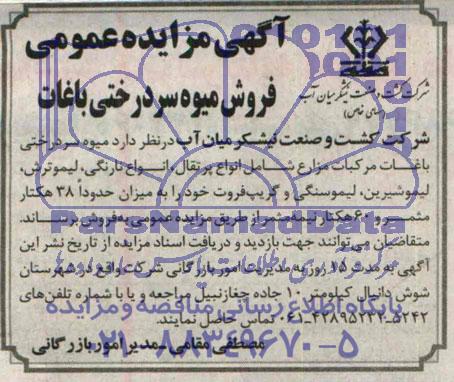 آگهی مزایده عمومی
فروش میوه سردرختی باغات
شرکت کشت و صنعت نیشکر میان آب
(سهامی خاص)
شرکت کشت و صنعت نیشکر میان آب درنظر دارد میوه سردرختی
باغات مرکبات مزارع شامل انواع پرتقال، انواع نارنگی، لیموترش،
لیموشیرین، لیموسنگی و گریپ‌فروت خود را به میزان حدوداً ۳۸ هکتار
مثمر و ۶۰ هکتار نیمه‌مثمر از طریق مزایده عمومی به‌فروش برساند.
متقاضیان می‌توانند جهت بازدید و دریافت اسناد مزایده از تاریخ نشر این
آگهی به مدت ۱۵ روز به مدیریت امور بازرگانی شرکت واقع در شهرستان
شوش دانیال کیلومتر ۱۰ جاده چغازنبیل مراجعه و یا با شماره تلفن‌های
۵۲۴۲-۰۶۱ تماس حاصل نمایند.
مصطفی مقامی - مدیر امور بازرگانی
ParsNamadData
پایگاه اطلاع رسانی مناقصه و مزایده
۰۲۱-۸۸۳۴۹۶۷۰-۵